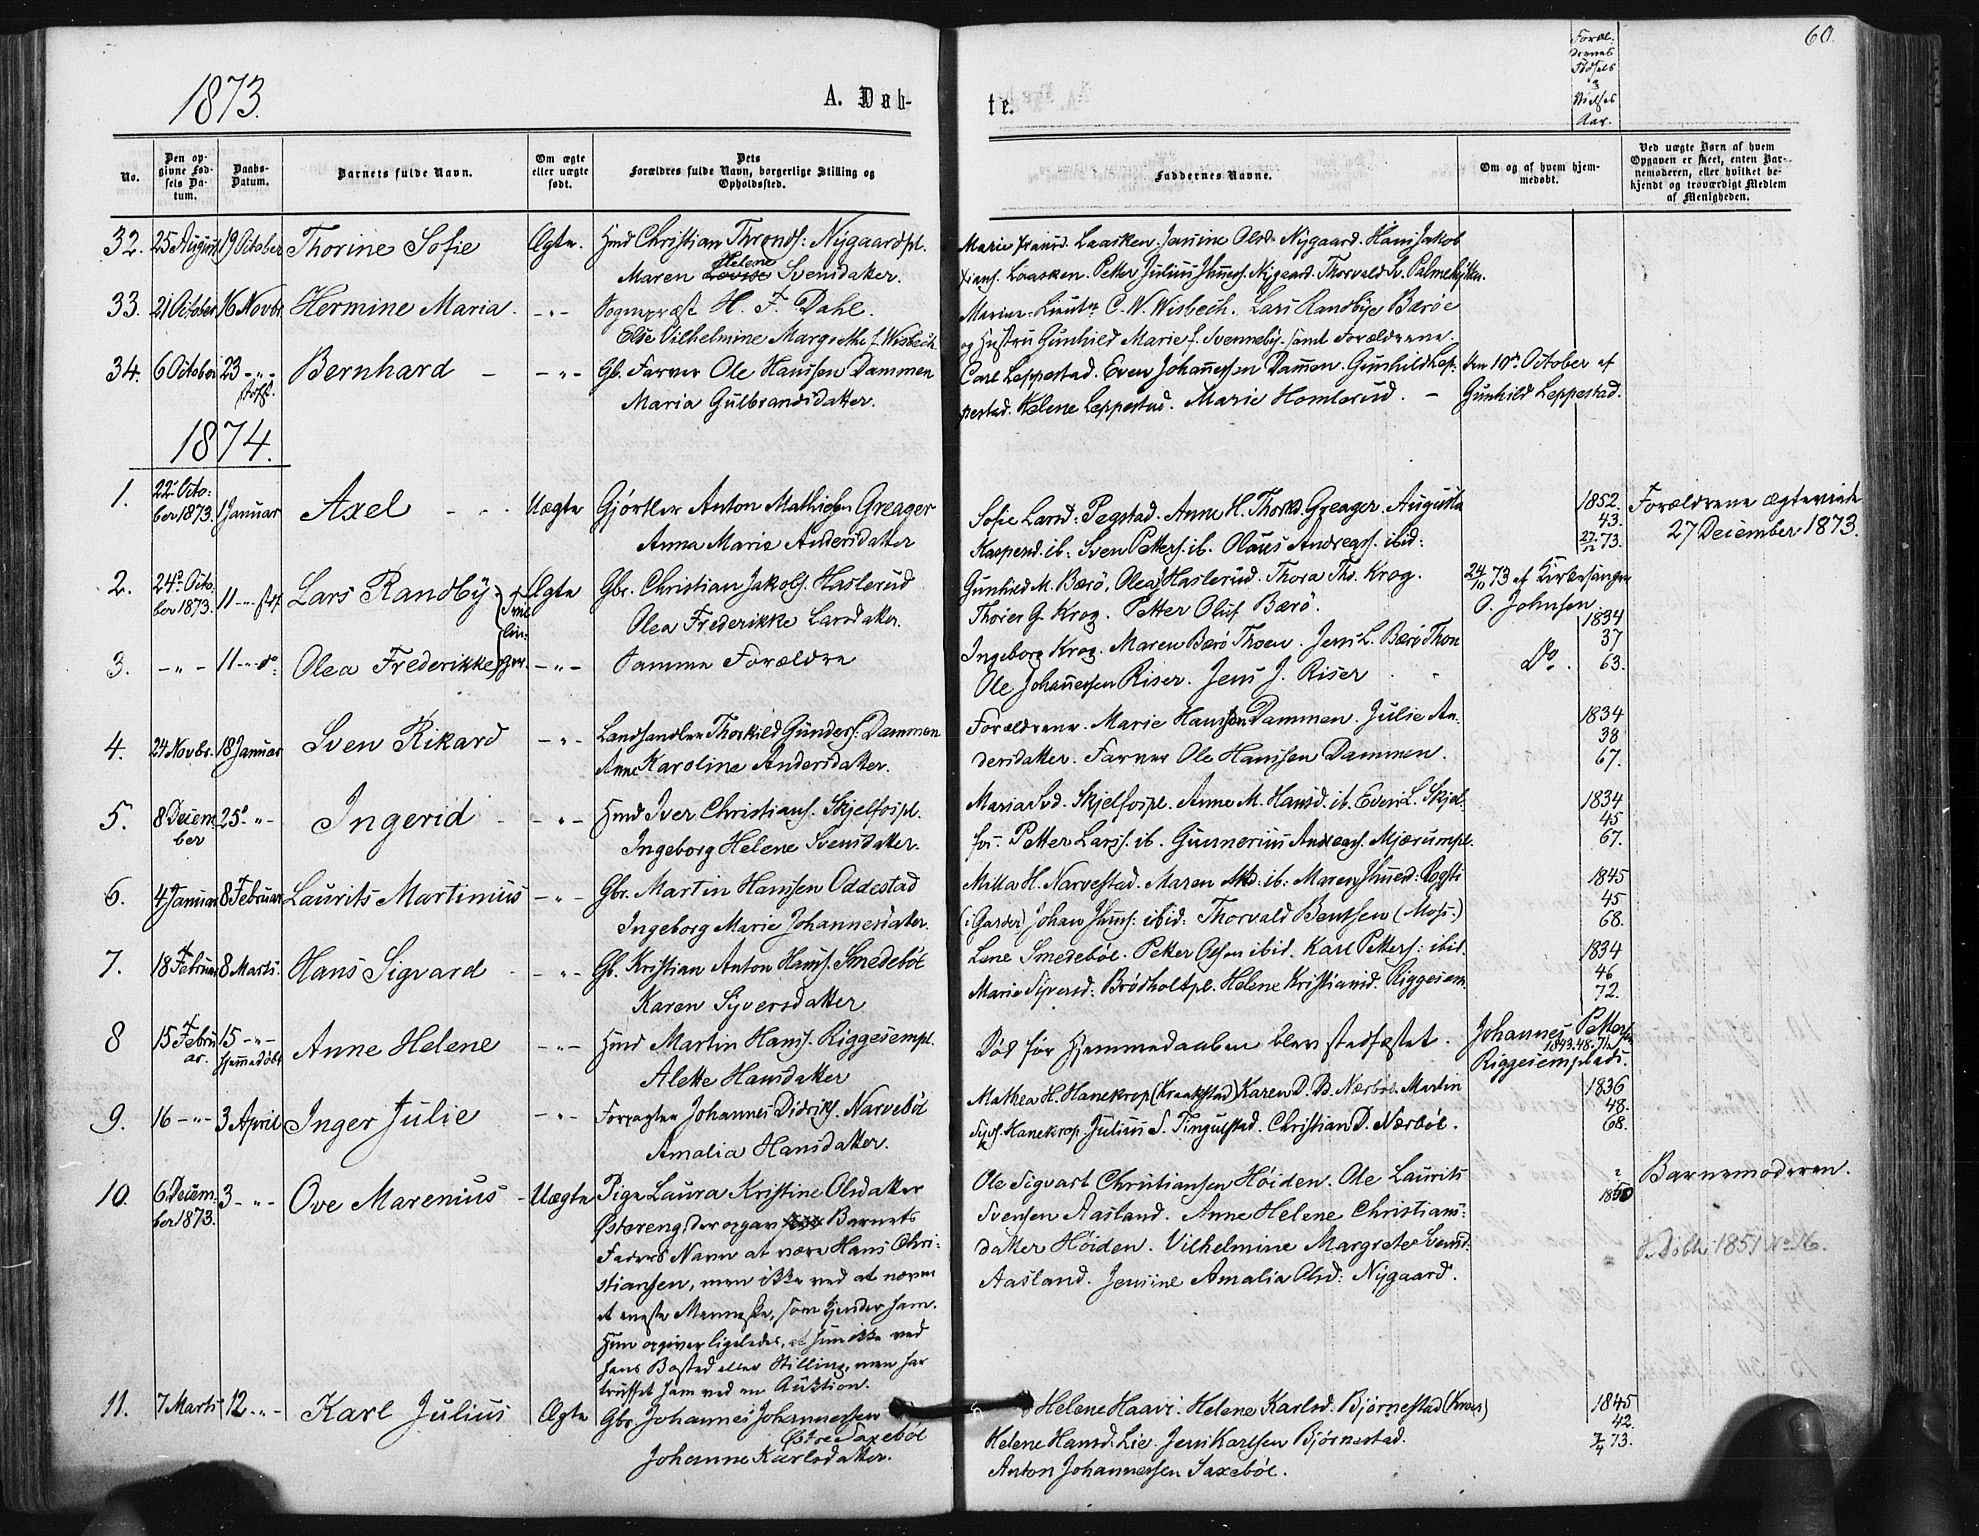 1873.
A. Døb-
te.
60.
Foræl-
drenes
Fødsels
&
Vielses
Aar.
No.
Den op-
givne Fød-
sels Da-
tum.
Daabs-
Datum.
Barnets fulde Navn.
Om ægte
eller uægte
født.
Dets
Forældres fulde Navn, borgerlige Stilling og
Opholdssted.
Faddernes Navne.
Om og af hvem hjem-
medøbt.
Ved uægte Børn af hvem
Opgaven er skeet, enten Bar-
nemoderen, eller hvilket be-
kjendt og troværdigt Medlem
af Menigheden.
32. 25 August 19 October Thorine Sofie Ægte. Hmd Christian Thronds: Nygaardpl.
Maren Lovise Helene Svensdatter.
Laasken. Jensine Olsd. Nygaard. Hans Jakob
Laasken. Petter Julius Nygaard. Thorvald
33. 21 October 16 Novbr. Hermine Maria. -"- Sogneprest H. F. Dahl.
Else Vilhelmine Margrethe f. Wisbech
Marine-Lieutn C. W. Wisbech. Lars Randbye Bærøe
og Hustru Gunhild Marie f. Svenneby. samt Forældrene.
34. 6 October 23 -"- Bernhard - -"- Gb. Farver Ole Hanssen Dammen
Maria Gulbrandsdatter.
Carl Leppestad. Even Johannessen Dammen. Gunhild Lep-
pestad. Helene Leppestad. Marie Homlerud. -
den 10de October af
Gunhild Leppestad.
1874.
1. 22 Octo-
ber 1873. 1 Januar Axel - - Uægte Gjørtler Anton Mathisen Greager
Anna Marie Andersdatter
Sofie Larsd: Pegstad. Anne H. Thorkd. Greager. Augusta
Kaspersd. ib: Sven Petters. ib. Olaus Andreas. ibid:
1852.
43.
27/12 73.
Forældrene ægteviede
27 December 1873.
2. 24de Octo-
ber 1873. 11 -"- Lars Randby Tvil-
lin-
ger. Ægte Gbr. Christian Jakobs. Haslerud
Olea Frederikke Larsdatter.
Gunhild M. Bærö, Olea Haslerud. Thora Ths. Krog.
Thorer G. Krog. Petter Oluf Bærö.
24/10 73 af Kirkesanger
O. Johnsen
3. -"- 11 -"- Olea Frederikke -"- Samme Forældre
Ingeborg Krog. Maren Bærö Thoen. Jens L. Bærö Thon
Ole Johannessen Riser. Jens J. Riser
Do.
1834
37
63.
4. 24 Novbr. 18 Januar Sven Rikard -"- Landhandler Thorkild Gunders: Dammen
Anne Karoline Andersdatter.
Forældrene. Marie Hanssen Dammen. Julie An-
dersdatter. Farver Ole Hanssen Dammen.
1834
38
67.
5. 8 Decem-
ber 25de -"- Ingerid - -"- Hmd Iver Christians. Skjelfospl.
Ingeborg Helene Svensdatter.
Maria Svd. Skjelfospl. Anne M. Hansd. ib. Even L. Skjel-
fos. Petter Larss. ib. Gunnerius Andreas. Mjærumpl.
1834
45
67.
6. 4 Januar 8 Februar Laurits Martinius -"- Gbr. Martin Hanssen Oddestad
Ingeborg Marie Johannesdatter.
Milla H. Narvestad. Maren ib: Maren
(i Garder) Johan ibid: Thorvald Bentsen (Moss:)
1845
45
68.
7. 18 Februar 8 Marts. Hans Sigvard - -"- Gb. Kristian Anton Hans. Smedebøl
Karen Syversdatter
Lene Smedebøl. Petter Olsen ibid. Karl Petters: ibid.
Marie Syversd: Brødholtpl. Helene Kristiansd. Riggesem.
1834
46
72.
8 15 Febru-
ar. 15 -"-
hjemmedøbt Anne Helene -"- Hmd Martin Hans. Riggesempl.
Alette Hansdatter
Død før Hjemmedaaben blev stadfæstet.
Johannes Pettersen
1843. 48. 71.
Riggesemplads.
9. 16 -"- 3 April Inger Julie -"- Forpagter Johannes Didriks. Narvebøl
Amalia Hansdatter.
Mathea H. Hanekrop (Kraakstad) Karen D. Nærbøl. Martin
Hanekrop Julius S. Tingulstad. Christian D. Nærbøl.
1836
48.
68.
10. 6 Decem-
ber 1873. 3 -"- Ove Marenius - Uægte Pige Laura Kristine Olsdatter
Østereng, der opgav Barnets
Faders Navn at være Hans Chri-
stiansen, men ikke ved at nævne
et eneste Menneske, som kjender ham.
Hun opgiver ligeledes, at hun ikke ved
hans Bosted eller Stilling, men har
truffet ham ved en Auktion.
Ole Sigvart Christiansen Høiden. Ole Laurits
Svensen Aasland. Anne Helene Christians-
datter Høiden. Vilhelmine Margrete Svensd:
Aasland. Jensine Amalia Olsd: Nygaard.
?
1850
Barnemoderen.
Døbte 1851 No 16.
11. 7 Marts 12 -"- Karl Julius Ægte Gbr. Johannes Johannessen
Østre Saxebøl
Johanne Karlsdatter.
Helene Haavi. Helene Karlsd. Bjørnestad (Kroer)
Helene Hansd. Lie. Jens Karlsen Bjørnestad.
Anton Johannessen Saxebøl.
1845
42.
7/4 73.